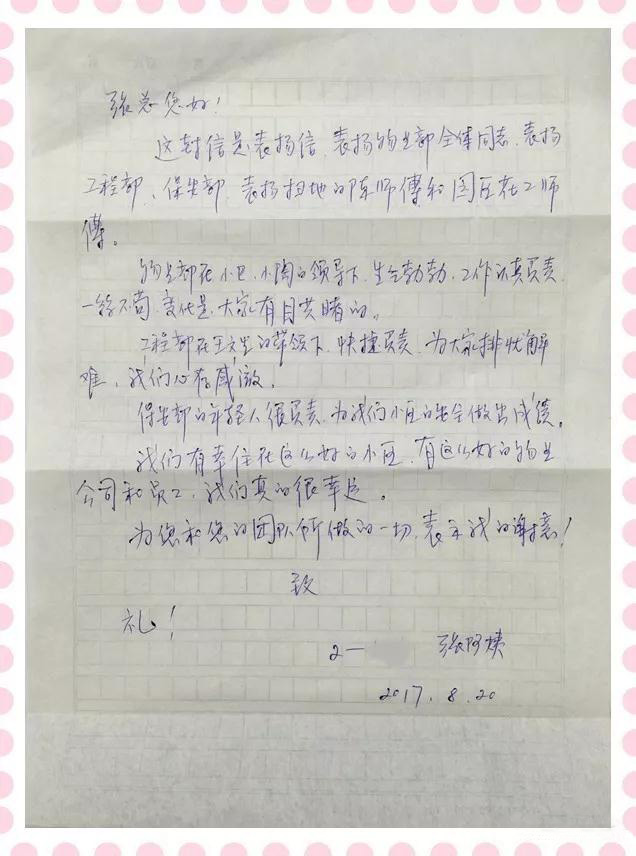 张总您好！
这封信是表扬信，表扬物业部全体同志，表扬
工程部、保安部，表扬扫地的陈师傅和园区花工师
傅。
物业部在小，小陶的领导下，生气勃勃，工作认真负责，
一丝不苟，变化是大家有目共睹的。
工程部在王先生的带领下，快捷负责，为大家排忧解
难，我们心存感激。
保安部的年轻人很负责，为我们小区的安全做出成绩。
我们有幸住在这么好的小区，有这么好的物业
公司和员工，我们真的很幸运。
为您和您的团队所做的一切，表示我的谢意！
致
礼！
2— 张阿姨
2017.8.20